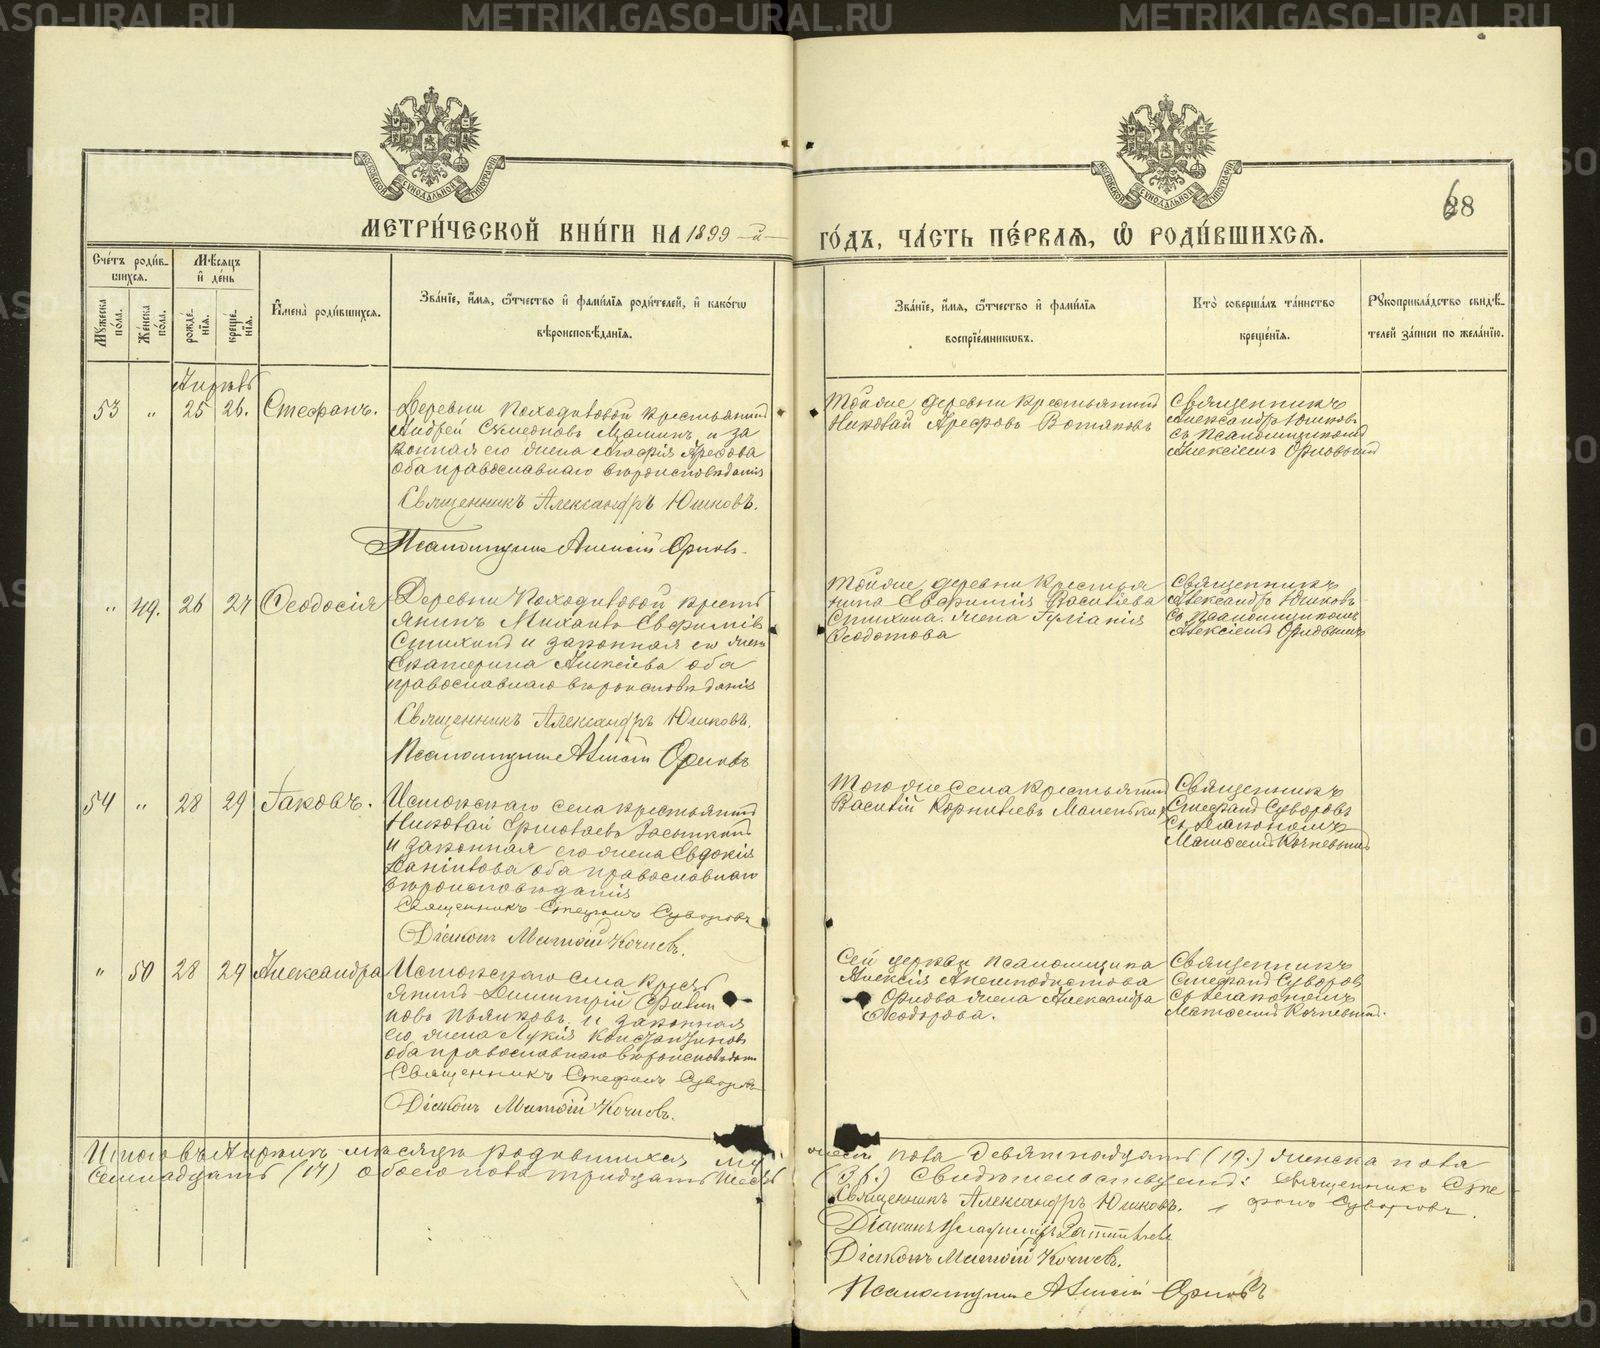 METRIKI.GASO-URAL.RU
МОСКОВСКОЙ СѴНОДАЛЬНОЙ ТИПОГРАФІИ
МОСКОВСКОЙ СѴНОДАЛЬНОЙ ТИПОГРАФІИ
68
МЕТРИ́ЧЕСКОЙ КНИ́ГИ НА 1899-й-
ГО́ДЪ, ЧА́СТЬ ПЕ́РВАЯ, Ѡ РОДИ́ВШИХСЯ.
Сче́тъ роди́в-
шихся.
Мѣсяцъ
и҆ де́нь
Мꙋ́жеска
по́ла.
Же́нска
по́ла.
рожде́-
нія.
креще́-
нія.
И҆мена̀ роди́вшихся.
Зва́ніе, и҆́мя, ѻ҆́тчество и҆ фами́лія роди́телей, и҆ како́гѡ
вѣроисповѣ́данія.
Зва́ніе, и҆́мя, ѻ҆́тчество и҆ фами́лія
воспрїе́мникѡвъ.
Кто̀ соверша́лъ та́инство
креще́нія.
Рꙋкоприкла́дство свидѣ́-
телей за́писи по жела́нію.
Апрѣль
53 " 25 26. Стефанъ.
Деревни Походиловой крестьянинъ
Андрей Сѵмеоновъ Мамин и за
конная его жена Агафія Арефова
оба православнаго вѣроисповѣданія
Священникъ Александръ Юшковъ.
Псаломщикъ Алексій Орловъ.
Тойже деревни крестьянинъ
Николай Арефовъ Вотяковъ
Священникъ
Александръ Юшковъ
съ псаломщикомъ
Алексіемъ Орловымъ
" 49. 26 27 Ѳеодосія
Деревни Походиловой кресть
янинъ Михаилъ Евфиміевъ
Стихинъ и законная его жена
Екатерина Алексіева оба
православнаго вѣроисповѣданія
Священникъ Александръ Юшковъ.
Псаломщикъ Алексій Орловъ
Тойже деревни крестья
нина Евфимія Василіева
Стихина жена Іуліанія
Ѳеодотова
Священникъ
Александръ Юшковъ
съ псаломщикомъ
Алексіемъ Орловымъ
54 " 28 29 Іаковъ.
Истокскаго села крестьянинъ
Николай Ермолаевъ Засыпкинъ
и законная его жена Евдокія
Даніилова оба православнаго
вѣроисповѣданія
Священникъ Стефанъ Суворовъ
Діаконъ Матѳій Кочневъ.
Того же села крестьянинъ
Василій Корниліевъ Маленькихъ
Священникъ
Стефанъ Суворовъ
съ діакономъ
Матѳіемъ Кочневымъ
" 50 28 29 Александра
Истокскаго села кресть
янинъ Димитрій Филип
повъ Пьянковъ и законная
его жена Лукія Константинова
оба православнаго вѣроисповѣдан
Священникъ Стефанъ Суворовъ
Діаконъ Матѳій Кочневъ.
Сей церкви псаломщика
Алексія Аполлодистова
Орлова жена Александра
Ѳеодорова.
Священникъ
Стефанъ Суворовъ
съ діакономъ
Матѳіемъ Кочневымъ.
Итого въ Апрѣлѣ мѣсяцѣ родившихся му
жеска пола девятнадцать (19.) женска пола
Семнадцать (17) обоего пола тридцать шесть
(36.) Свидѣтельствуемъ: Священникъ Сте
фанъ Суворовъ.
Священникъ Александръ Юшковъ.
Діаконъ
Діаконъ Матѳій Кочневъ.
Псаломщикъ Алексій Орловъ